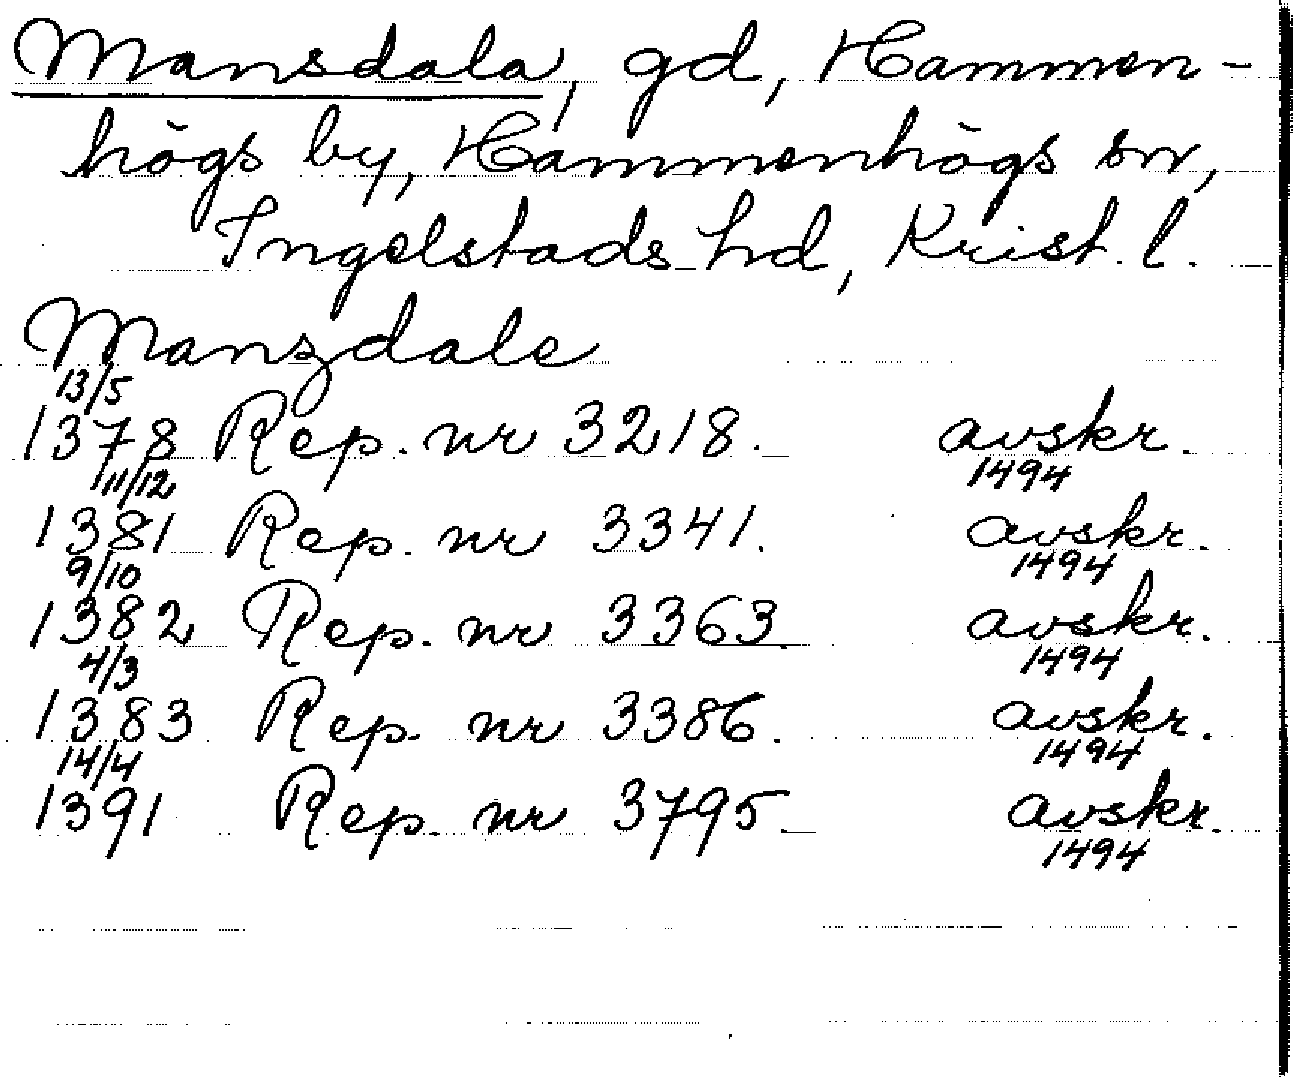 Mansdala, gd, Hammen-
högs by, Hammenhögs sn,
Ingelstads hd, Krist. l.
Manzdale
13/5
1378 Rep. nr 3218. avskr.
1494
11/12
1381 Rep. nr 3341. avskr.
1494
9/10
1382 Rep. nr 3363 avskr.
1494
4/3
1383 Rep. nr 3386. avskr.
1494
14/4
1391 Rep. nr 3795 avskr.
1494